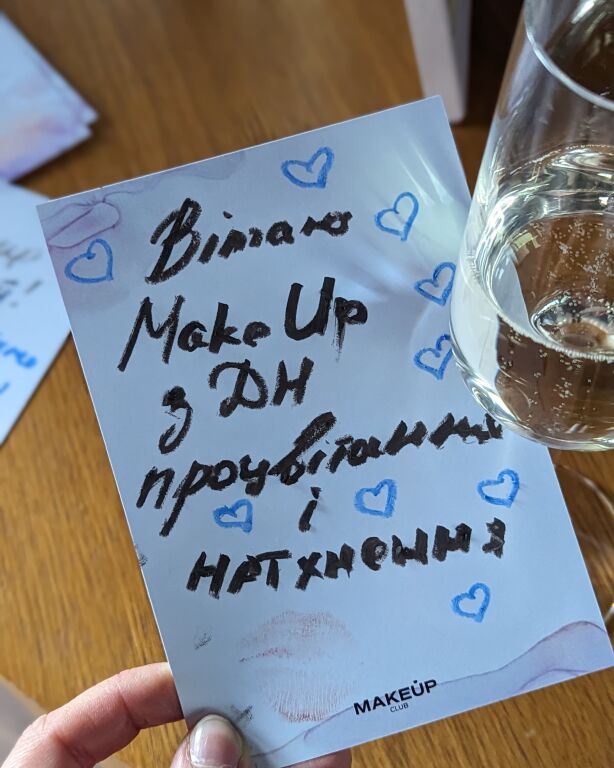 Вітаю
MakeUp
з ДН
процвітання
і
натхнення
MAKEUP
CLUB